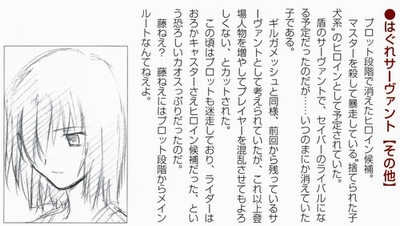 ●はぐれサーヴァント【その他】
プロット段階で消えたヒロイン候補。
マスターを殺して暴走している“捨てられた子
犬系”のヒロインとして予定されていた。
盾のサーヴァントで、セイバーのライバルにな
る予定だったのだが……いつのまにか消えていた
子である。
ギルガメッシュと同様、前回から残っているサ
ーヴァントとして考えられていたが、これ以上登
場人物を増やしてプレイヤーを混乱させてもよろ
しくない、とカットされた。
この頃はプロットも迷走しており、ライダーは
おろかキャスターさえヒロイン候補だった、とい
う恐ろしいカオスっぷりだったのだ。
藤ねえ？　藤ねえにはプロット段階からメイン
ルートなんてねえよ。